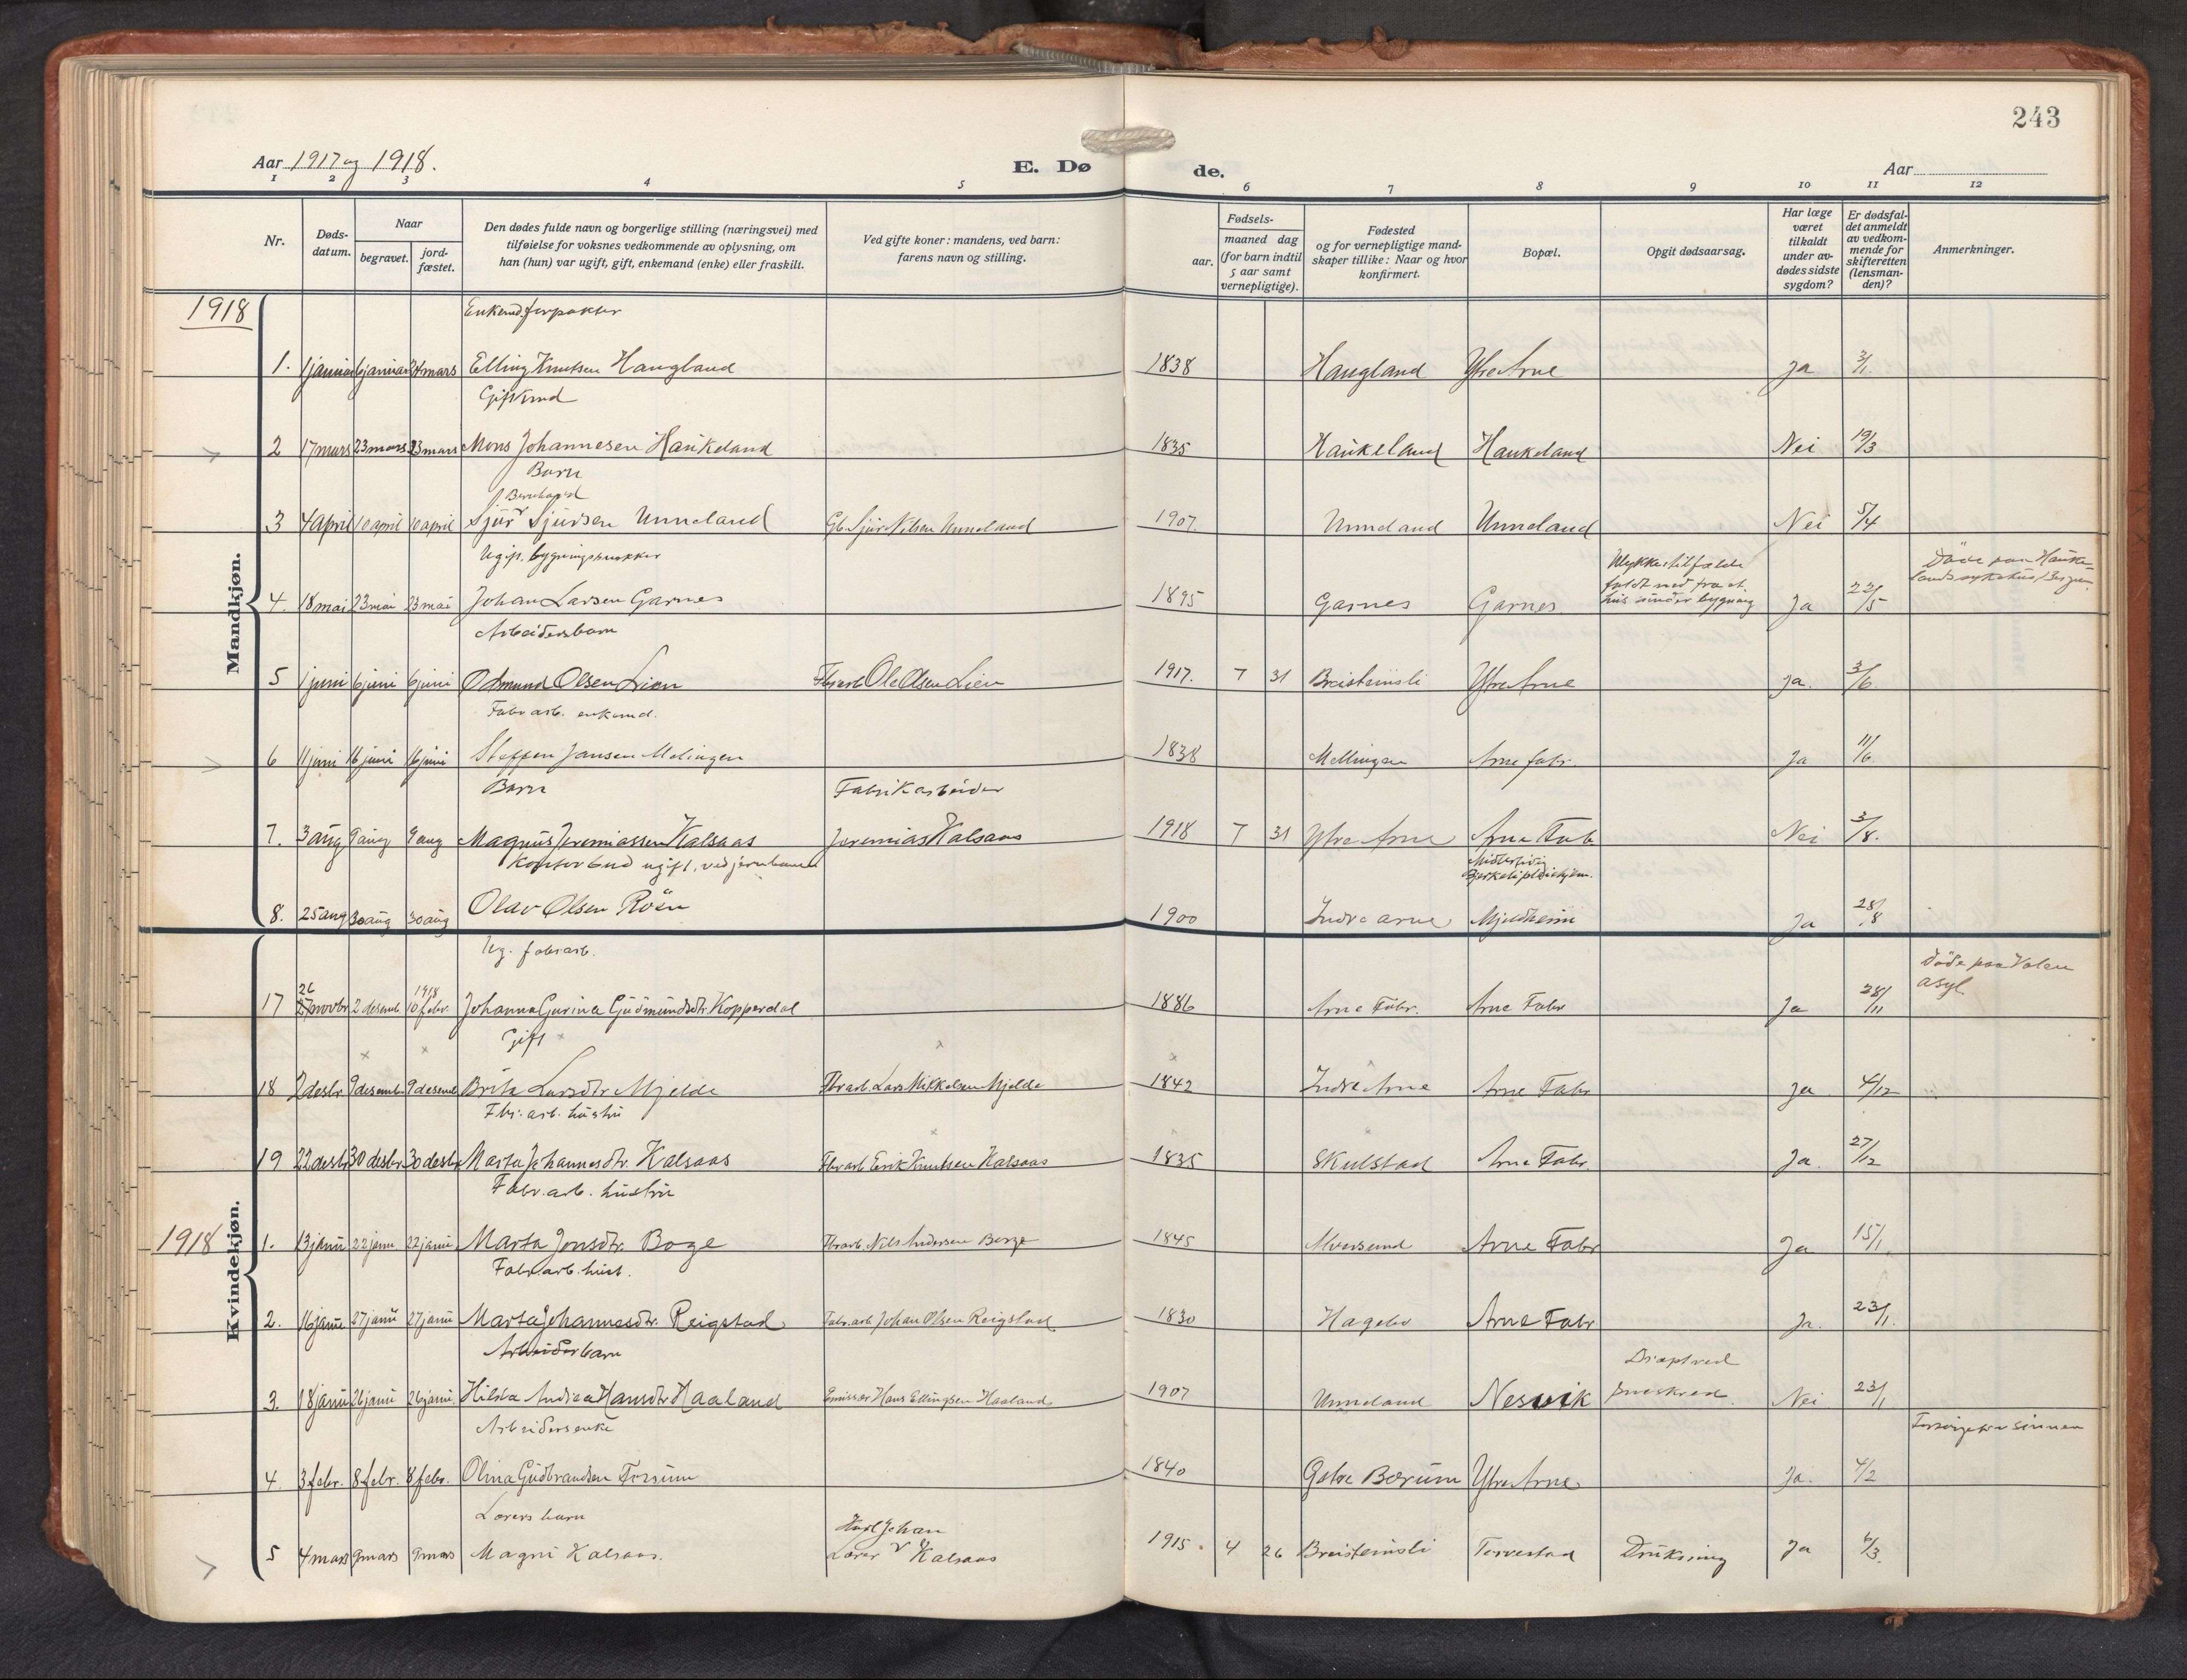 243
Aar 1917 og 1918.
E. Dø de.
Aar
1 2 3 4 5 6 7 8 9 10 11 12
Nr.
Døds-
datum.
Naar
begravet.
jord-
fæstet.
Den dødes fulde navn og borgerlige stilling (næringsvei) med
tilføielse for voksnes vedkommende av oplysning, om
han (hun) var ugift, gift, enkemand (enke) eller fraskilt.
Ved gifte koner: mandens, ved barn:
farens navn og stilling.
Fødsels-
aar.
maaned dag
(for barn indtil
5 aar samt
vernepligtige).
Fødested
og for vernepligtige mand-
skaper tillike: Naar og hvor
konfirmert.
Bopæl.
Opgit dødsaarsag.
Har læge
været
tilkaldt
under av-
dødes sidste
sygdom?
Er dødsfal-
det anmeldt
av vedkom-
mende for
skifteretten
(lensman-
den)?
Anmerkninger.
Mandkjøn.
1918
Enkemd. forpakter
1. 1 januar 6 januar 24 mars Elling Knutsen Haugland 1838 Haugland Ytre Arne Ja 3/1
Gift
2 17 mars 23 mars 23 mars Mons Johannesen Haukeland 1835 Haukeland Haukeland Nei 19/3
Barn
3 4 april 10 april 10 april Sjur Sjursen Unneland Gb. Sjur Nilsen Unneland 1907. Unneland Unneland Nei 5/4
Ugift. bygningssnekker
Ulykkestilfælde
faldt ned fra et
hus under bygning
Døde paa Hauke-
lands sykehus, Bergen.
4. 18 mai 23 mai 23 mai Johan Larsen Garnes 1895 Garnes Garnes Ja 22/5
Arbeidersbarn
5 1 juni 6 juni 6 juni Odmund Olsen Lien Fbrarb Ole Olsen Lien 1917. 7 31 Breisteinsli Ytre Arne Ja. 3/6
Fabr arb. enkemd.
6 11 juni 16 juni 16 juni Steffen Jansen Melingen 1838 Mellingen Arne fabr. Ja 11/6
Barn Fabrikarbeider
7. 3 aug 9 aug 9 aug Magnus Jeremiassen Kalsaas Jeremias Kalsaas 1918 7 31 Ytre Arne Arne Fabr Nei 3/8.
Kontorbud ugift, ved jernbanen
Midlertidig
8. 25 aug 30 aug 30 aug Olav Olsen Röen 1900 Indre Arne Mjeldheim Ja 28/8
Kvindekjøn.
Ug. fabrarb.
Døde paa Valen
asyl
17 26 27 novbr 2 desemb. 1918 10 febr. Johanna Gurina Gudmundsdtr. Kopperdal 1886 Arne Fabr. Arne Fabr Ja 28/11
Gift
18 2 desbr. 9 desemb. 9 desemb Brita Larsdtr Mjelde Fbrarb Lars Mikkelsen Mjelde 1842 Indre Arne Arne Fabr Ja 4/12
Fbr. arb. hustru
19 22 desbr 30 desbr. 30 desbr Marta Johannesdtr. Kalsaas Fbrarb Erik Knutsen Kalsaas 1835 Skulstad Arne Fabr Ja. 27/12
Fabr. arb. hustru
1918 1. 13 janu 22 janu 22 janu Marta Jonsdtr. Boge Fbrarb. Nils Andersen Berge 1845 Alversund Arne Fabr Ja 15/1
Fabr arb. hust.
2. 16 janu 27 janu 27 janu Marta Johannesdtr. Reigstad Fabr. arb Johan Olsen Reigstad 1830 Hagebø Arne Fabr Ja. 23/1.
Arbeiderbarn
Dræpt ved
sneskred.
3. 18 janu 26 janu 26 janu. Hilda Andrea Hansdtr Haaland Emissær Hans Ellingsen Haaland 1907 Unneland Nesvik Nei 23/1
Arbeidersenke
4. 3 febr. 8 febr. 8 febr. Olina Gudbrandsen Forsum 1840 Østre Bærum Ytre Arne Ja. 4/2
Lærers barn Karl Johan
5 4 mars 9 mars 9 mars Magni Kalsaas. Lærer Kalsaas 1915. 4 26 Breisteinsli Torvestad Drukning Ja 6/3.